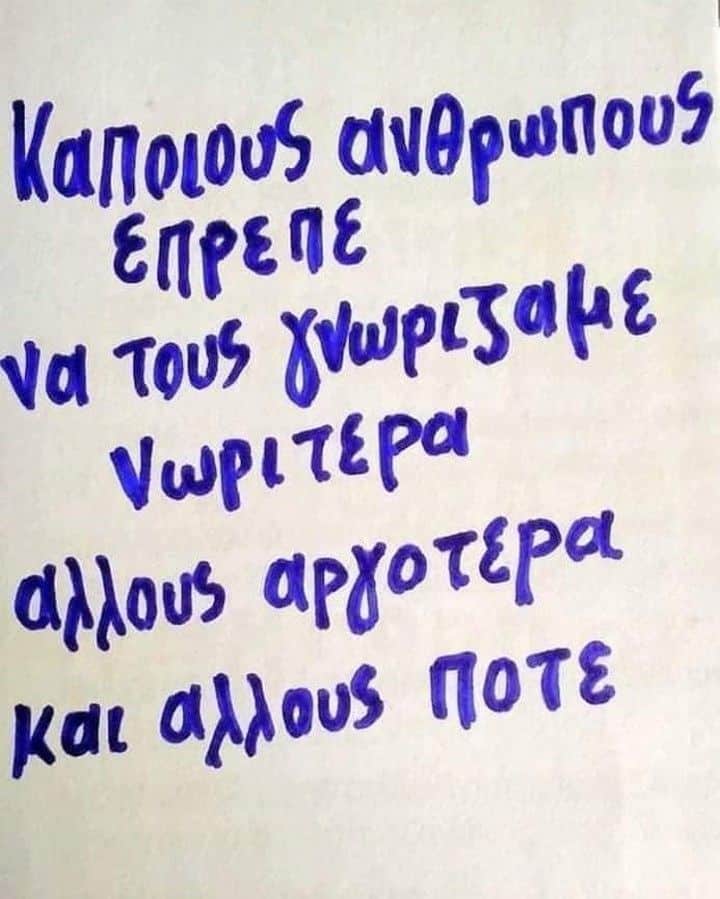 Καποιους ανθρωπους
επρεπε
να τους γνωριζαμε
νωριτερα
αλλους αργοτερα
και αλλους ποτε